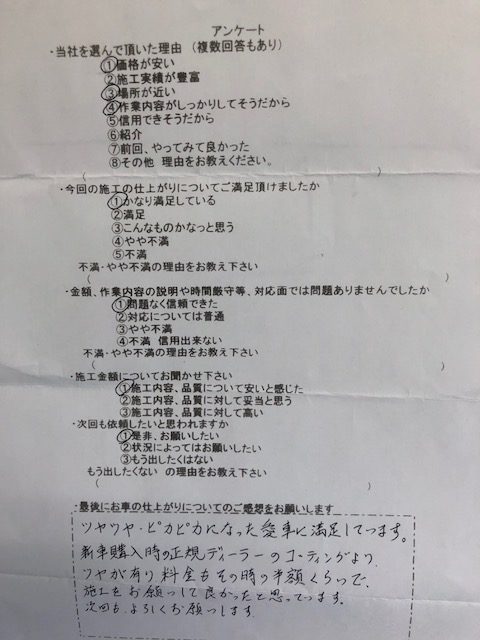 アンケート
・当社を選んで頂いた理由 （複数回答もあり）
①価格が安い
②施工実績が豊富
③場所が近い
④作業内容がしっかりしてそうだから
⑤信用できそうだから
⑥紹介
⑦前回、やってみて良かった
⑧その他 理由をお教えください。
（ ）
・今回の施工の仕上がりについてご満足頂けましたか
①かなり満足している
②満足
③こんなものかなっと思う
④やや不満
⑤不満
不満・やや不満の理由をお教え下さい
（ ）
・金額、作業内容の説明や時間厳守等、対応面では問題ありませんでしたか
①問題なく信頼できた
②対応については普通
③やや不満
④不満 信用出来ない
不満・やや不満の理由をお教え下さい
（ ）
・施工金額についてお聞かせ下さい
①施工内容、品質について安いと感じた
②施工内容、品質に対して妥当と思う
③施工内容、品質に対して高い
・次回も依頼したいと思われますか
①是非、お願いしたい
②状況によってはお願いしたい
③もう出したくはない
もう出したくない の理由をお教え下さい
（ ）
・最後にお車の仕上がりについてのご感想をお願いします
ツヤツヤ・ピカピカになった愛車に満足しています。
新車購入時の正規ディーラーのコーティングより、
ツヤが有り、料金もその時の半額くらいで、
施工をお願いして良かったと思っています。
次回も、よろしくお願いします。